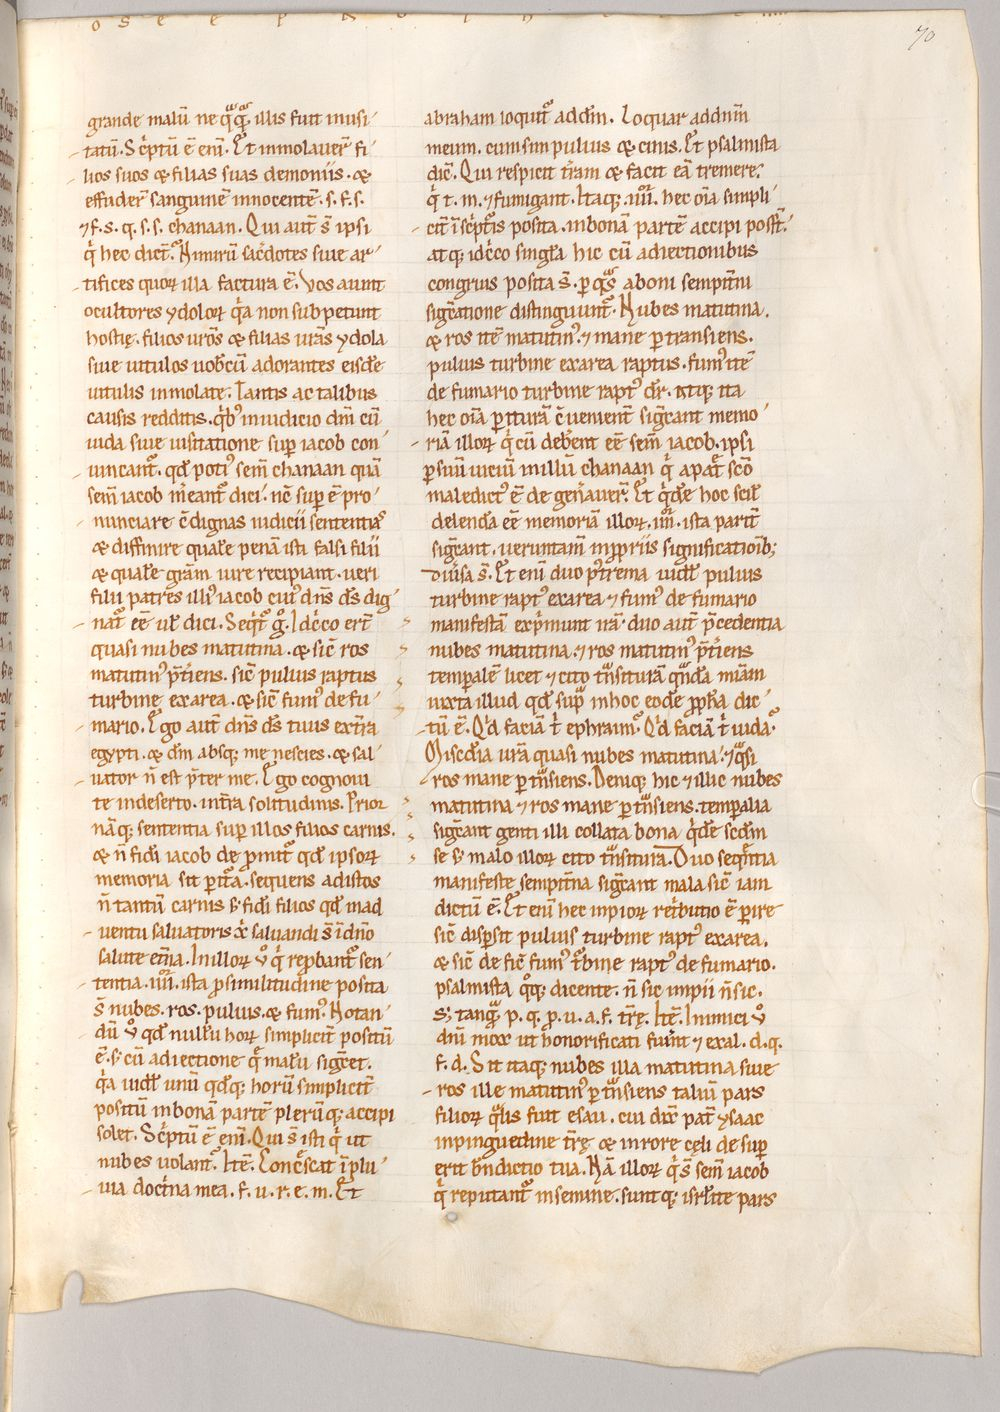 O S E E P R O P H E
70
grande malū ne q̄q̄ illis fuit inusi
tatū. Scͥptū ē enī. Et inmolauerͭ fi
lios suos & filias suas demoniis. &
effuderͭ sanguinē innocentē. s. f. s.
⁊ f. s. q. s. s. chanaan. Qui autē s̄ ipsi
qͥ hec dictͭ. Nimirū sac̄dotes siue ar
tifices quoꝝ illa factura ē. Vos aiunt
ocultores ydoloꝝ qͥa non subpetunt
hostię. filios urōs & filias urās ydola
siue uitulos uobcū adorantes eisdē
uitulis inmolate. Tantis ac talibus
causis redditis. qͥbꝰ in iudicio dnī cū
iuda siue uisitatione sup iacob con
uincantͭ. qd̄ potiꝰ semē chanaan quā
semē iacob meantͭ dici. nc̄ sup ē pro
nunciare c̄dignas iudicii sententias
& diffinire qualē penā isti falsi filii
& qualē grām uire recipiant. ueri
filii patrēs illiꝰ iacob cuiꝰ dn̄s d̄s dig
natͭ eē uł dici. Seqͭ g̊. Idcͥco ert̄
quasi nubes matutina. & sic̄ ros
matutinꝰ p̄t̄iens. sic̄ puluis raptus
turbine ex area. & sic̄ fumꝰ de fu
mario. Ego autē dn̄s d̄s tuus extͣ
egypti. & dm̄ absq; me nescies. & sal
uator n̄ est p̄ter me. Ego cognoui
te in deserto. in trā solitudinis. Prior
nāq; sententia sup illos filios carnis.
& n̄ fidi iacob de promitͭ qd̄ ipsoꝝ
memoria sit pitͣa. sequens ad istos
n̄ tantū carnis sꝫ fidi filios qd̄ in ad
uentu saluatoris & saluandi s̄ in dn̄o
salute etn̄a. In illoꝝ ů qͥ rep̄bantͭ sen
tentia. iiii. ista p similitudinē posita
s̄ nubes. ros. puluis. & fumꝰ. Notan
dū ů qd̄ nullū hoꝝ simplicit̄ positū
ē. sꝫ cū adiectione qͥ malū sig̅et.
qͥa uidł unū qd̄q; horū simplicit̄
positū in bonā partē plerūq; accipi
solet. Scͥptū ē enī. Qui s̄ isti qͥ ut
nubes uolantͭ. Itē. Conc̄scat ī plu
uia doctͥna mea. f. u. r. e. m. Et
abraham loquitͭ ad dm̄. Loquar ad dnm̄
meum. cum sim puluis & cinis. Et psalmista
dic̄. Qui respicit trām & facit eā tremere.
qͥ t. m. ⁊ fumigant. Itaq; iiii. hec oīa simpli
cit̄ ī scͥptͥs posita. in bonā partē accipi possͭ.
atq; idcͥco singla hic cū adiectionibus
congruis posita s̄. p qͣs a boni sempitn̄i
sig̅catione distinguuntͭ. Nubes matutina.
& ros itē matutinꝰ. ⁊ mane p transiens.
puluis turbine ex area raptus. fumꝰ itē
de fumario turbine raptꝰ dr̄. Itaq; ita
hec oīa pitura c̄uenient̄ sig̅cant memo
riā illoꝝ qͥ cū debent eē semē iacob. ipsi
p suū uiciū in illū chanaan qͥ a patͤ sc̄o
maledictꝰ ē de genͣuerͭ. Et qͥdē hoc scił
delenda eē memoriā illoꝝ. iiii. ista parit̄
sig̅cant. ueruntam̄ in p̄priis significationībꝫ
diuisa s̄. Et enī duo p̄trema uidł puluis
turbine raptꝰ ex area ⁊ fumꝰ de fumario
manifestā exp̄munt irā. duo autē p̄cedentia
nubes matutina. ⁊ ros matutinꝰ p̄t̄iens
temporalē licet ⁊ cito tn̄siturā qn̄dā miām
iuxta illud qd̄ supͣ in hoc eodē ppħa dic
tū ē. Qd̄ faciā tͥ ephraim. Qd̄ faciā tͥ iuda.
Misc̄dia urā quasi nubes matutina. ⁊ qͣsi
ros mane p tn̄siens. Deniq; hic ⁊ illic nubes
matutina ⁊ ros mane p tn̄siens. temporalia
sig̅cant genti illi collata bona qͥdē scdm̄
se sꝫ malo illoꝝ cito tn̄situra. Duo seqn̄tia
manifeste sempitn̄a sig̅cant mala sic̄ iam
dictū ē. Et enī hec inpioꝝ ret̄butio ē pire
sic̄ dispsit puluis turbine raptꝰ ex area.
& sic̄ de fic̄ fumꝰ tͧbine raptꝰ de fumario.
psalmista qͦq; dicente. n̄ sic impii n̄ sic.
sꝫ tanqͣ p. q. p. u. a. f. trę. Itē. Inimici ů
dnī mox ut honorificati fuerͭ ⁊ exal. d. q.
f. d. Sit itaq; nubes illa matutina siue
ros ille matutinꝰ p tn̄siens taliū pars
filioꝝ qͣlis fuit esau. cui dix̄ patͤ ysaac
in pinguedine trę & in rore cęli desup
erit bn̄dictio tua. Nā illoꝝ qͥ s̄ semē iacob
qͥ reputantͭ in semine. suntq; isrłite pars